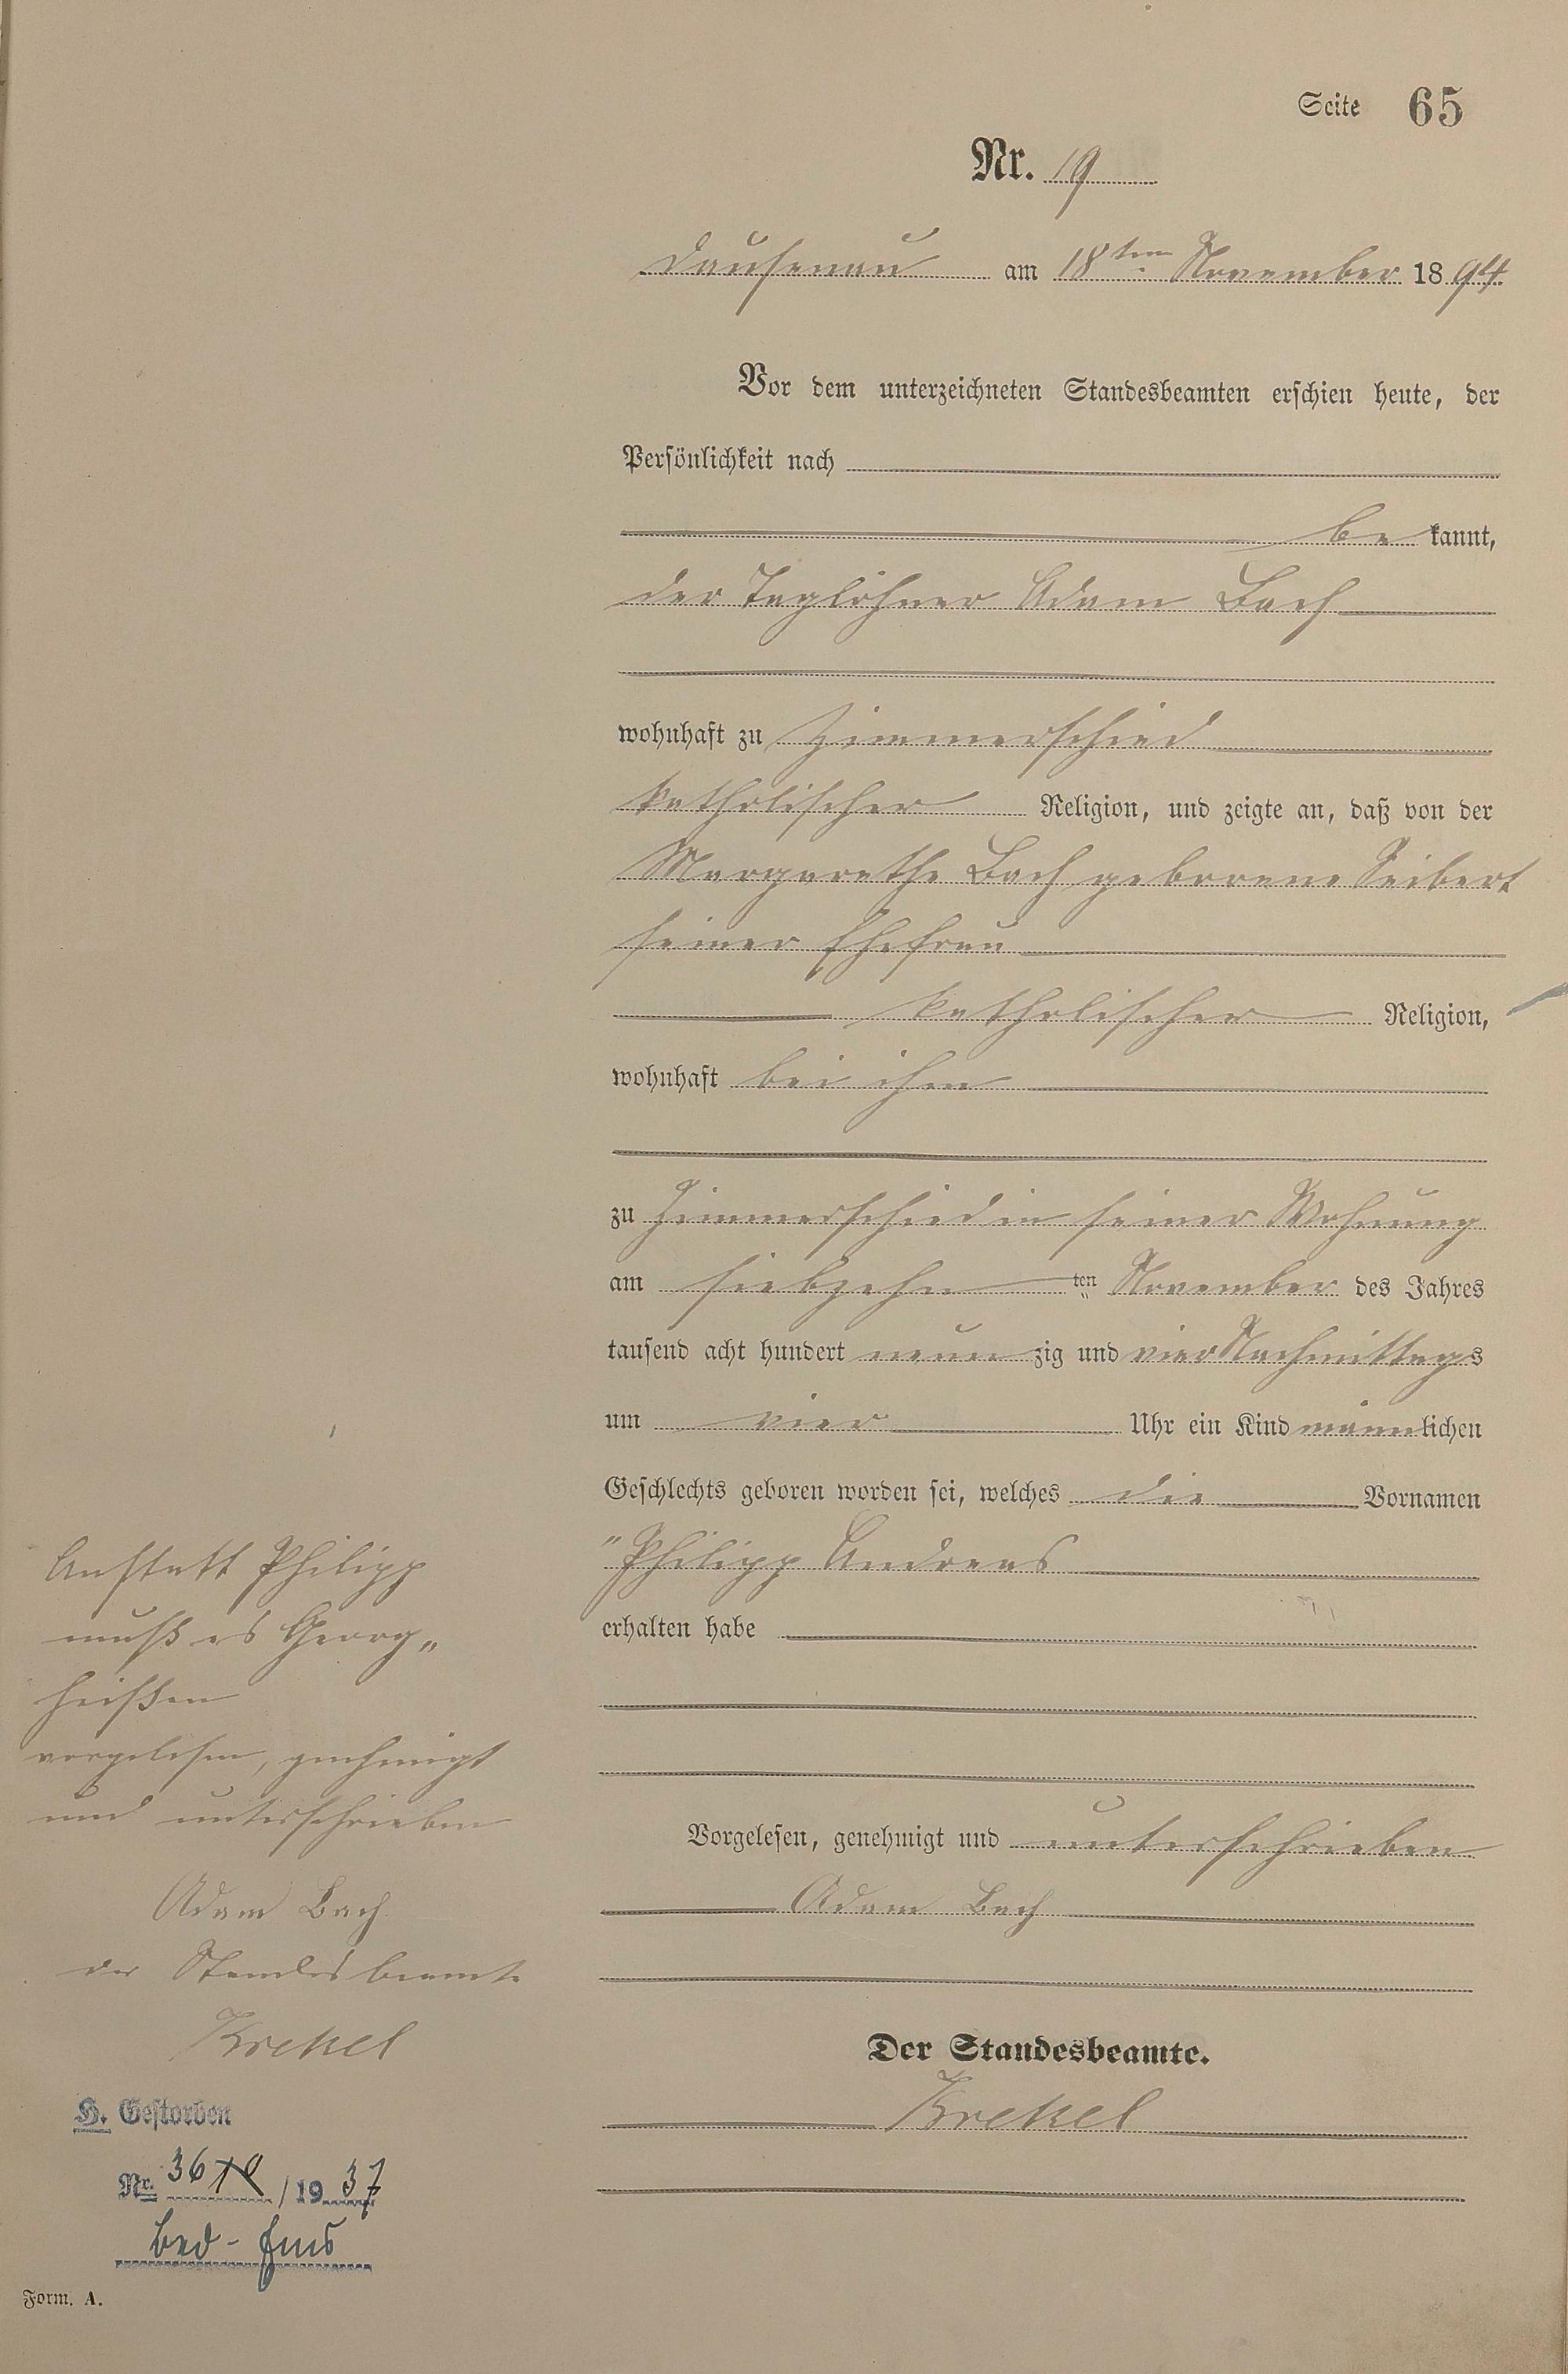 Seite 65
Nr. 19
Dausenau am 18ten November 1894.
Vor dem unterzeichneten Standesbeamten erschien heute, der
Persönlichkeit nach
be kannt,
der Taglöhner Adam Bach
wohnhaft zu Zimmerschied
katholischer Religion, und zeigte an, daß von der
Margarethe Bach geborene Seibert
seiner Ehefrau
katholischer Religion,
wohnhaft bei ihm
zu Zimmerschied in seiner Wohnung
am siebzehn ten November des Jahres
tausend acht hundert neun zig und vier Nachmittags
um vier Uhr ein Kind männlichen
Geschlechts geboren worden sei, welches die Vornamen
"Philipp Andreas
erhalten habe
Vorgelesen, genehmigt und unterschrieben
Adam Bach
Der Standesbeamte.
Krekel
Anstatt Philipp
muß es Georg„
heißen
vorgelesen, genehmigt
und unterschrieben
Adam Bach
der Standesbeamte
Krekel
H. Gestorben
Nr. /1937
Bad-Ems
Form. A.